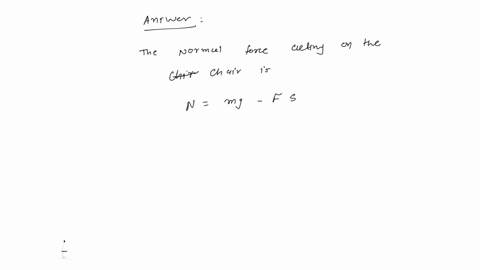 Answer :
The Normal force acting on the
chair is
N = mg - F S